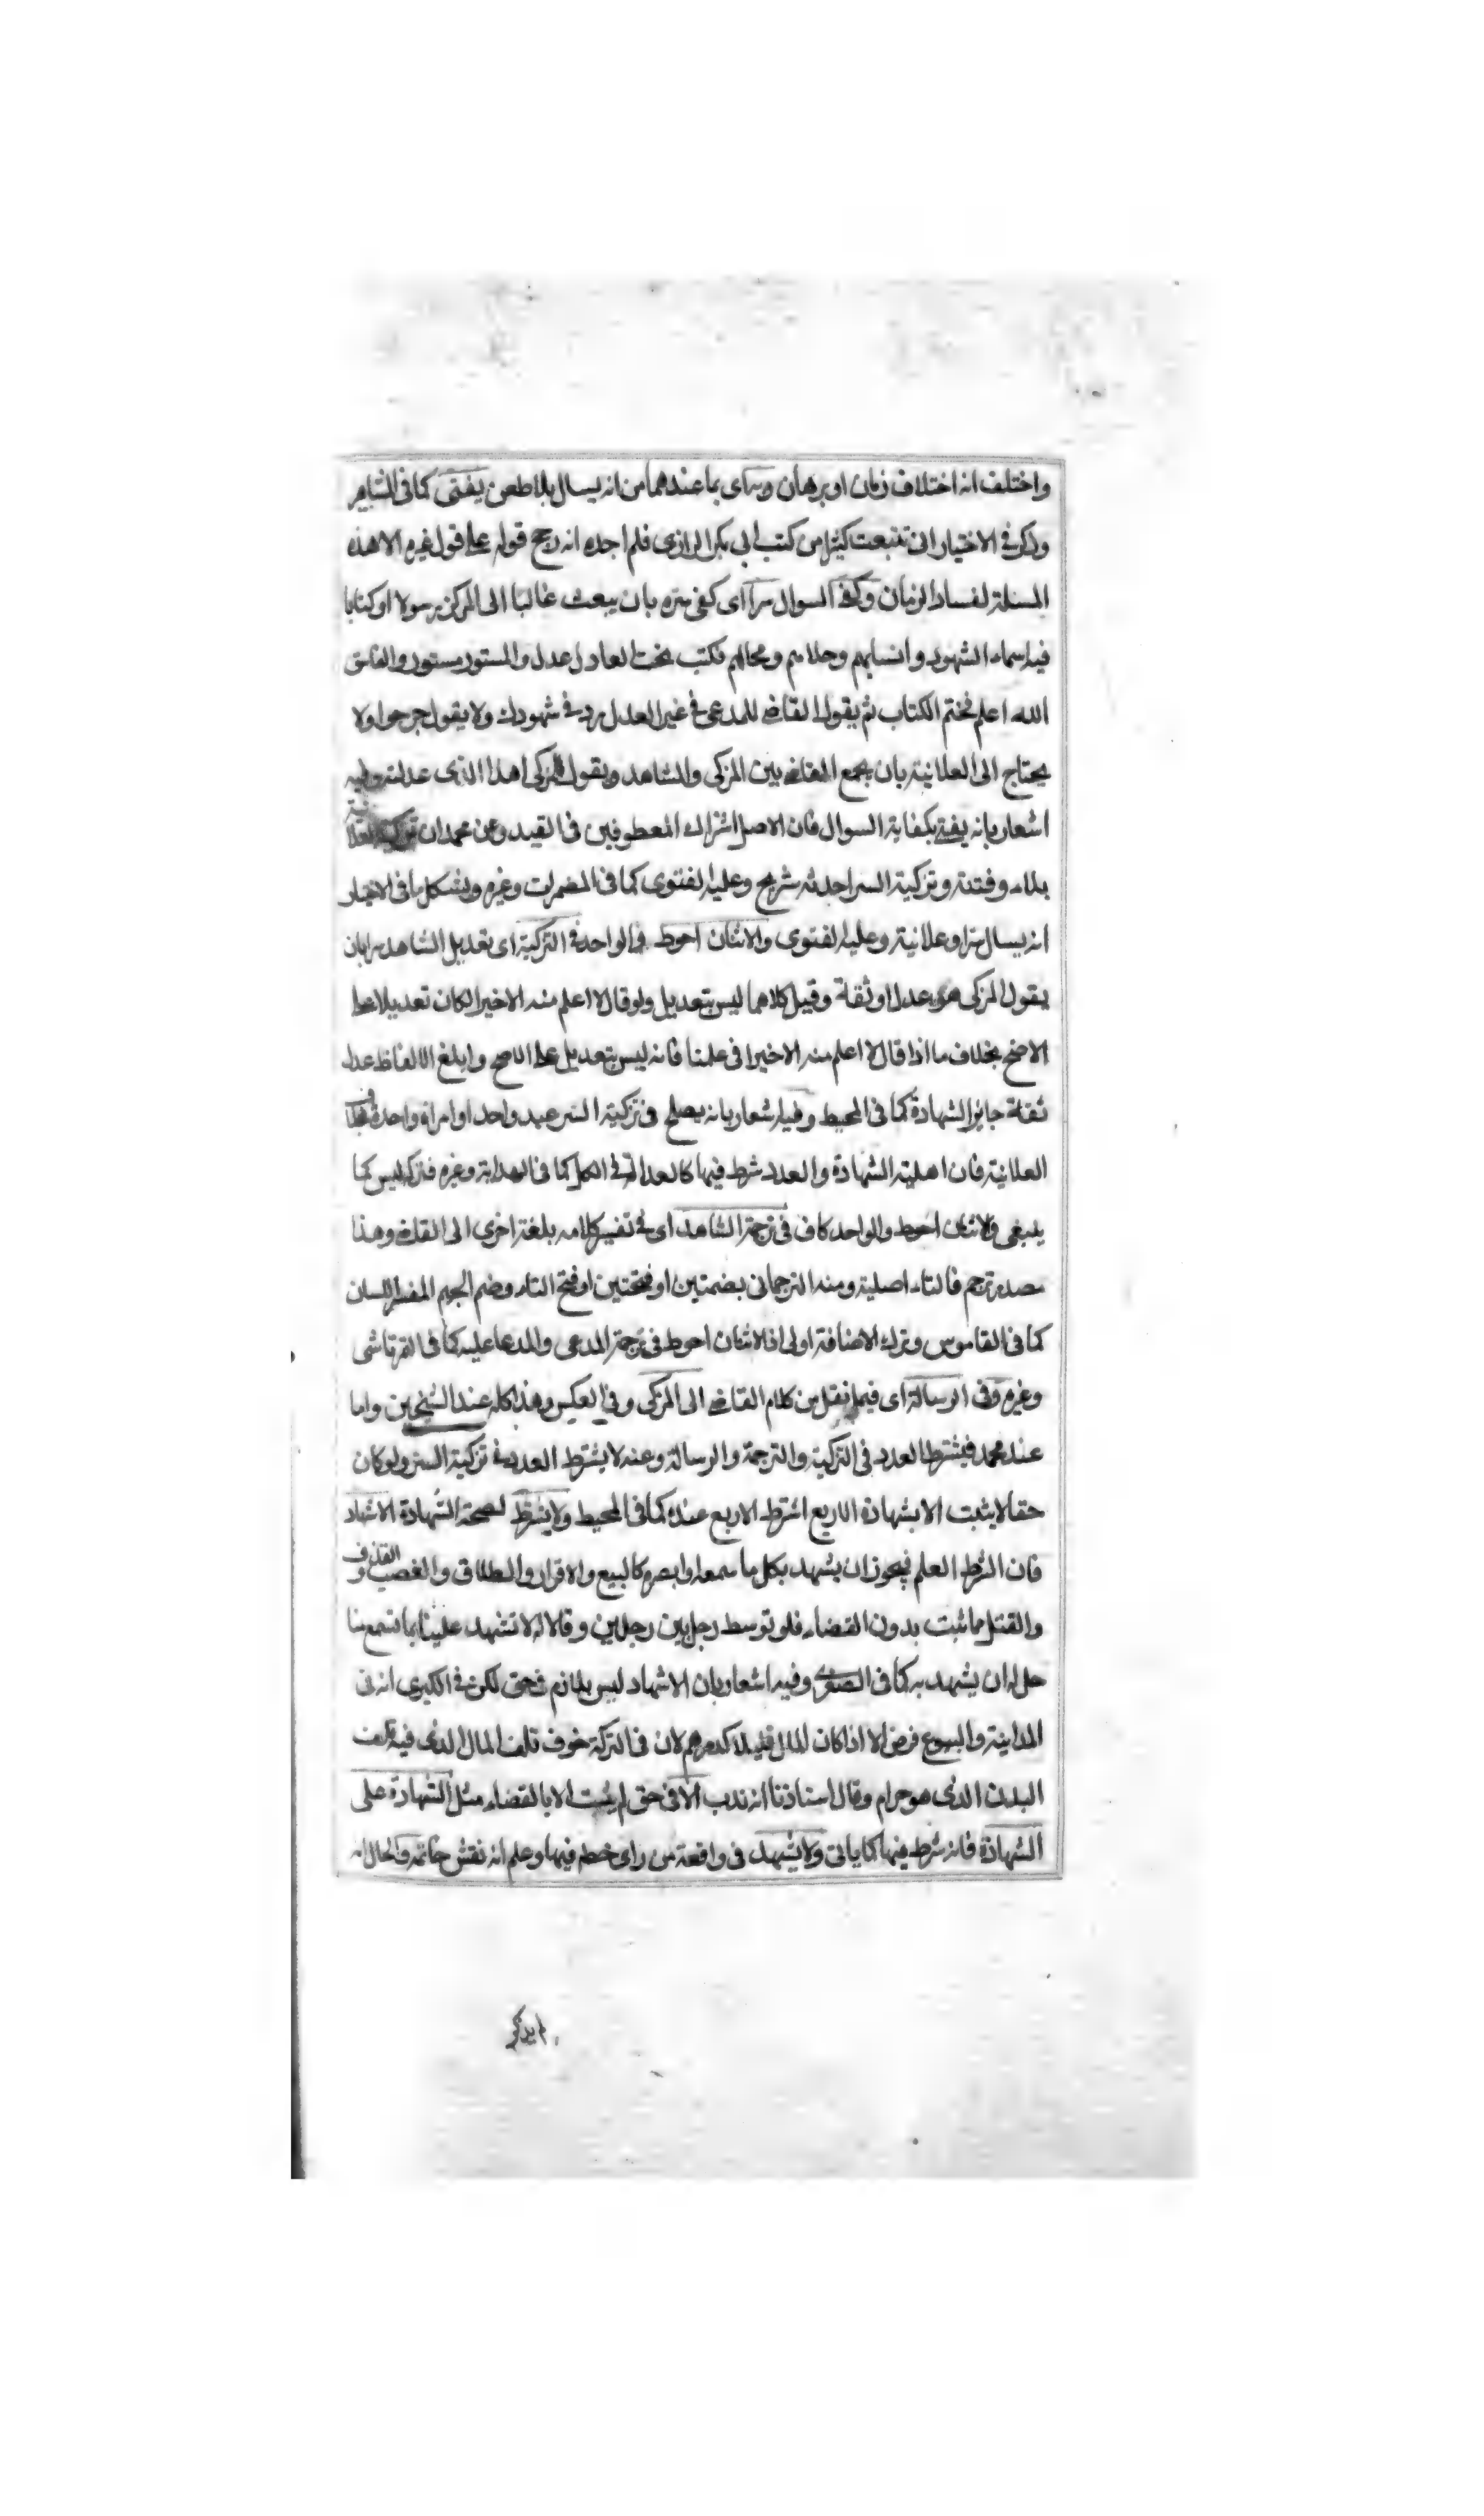 واختلف انه اختلاف زمان او برهان وبه اى بما عندهما من انه يسال بلا طعن يفتى كما فى المشاهير
وذكر فى الاختيار انى تتبعت كثيرا من كتب ابى بكر الرازى فلم اجده انه رجح قوله على قول غيره الا هذه
المسئلة لفساد الزمان وكفى السوال سرا اى كفى سره بان يبعث غالبا الى المزكى رسولا او كتابا
فيه اسماء الشهود وانسابهم وحلاهم ومحالهم فكتب تحت العادل عدل والمستور مستور والفاسق
الله اعلم فختم الكتاب ثم يقول القاضى للمدعى فى غير العدل زد فى شهودك ولا يقول جرحوا ولا
يحتاج الى العلانية بان يجمع القاضى بين المزكى والشاهد ويقول للمزكى اهذا الذى عدلته وفيه
اشعار بانه يفتى بكفاية السوال فان الاصل اشتراك المعطوفين فى القيد وعن محمد ان تزكية العلانية
بلاء وفتنة وتزكية السر احدثه شريح وعليه الفتوى كما فى المضمرات وغيره ويشكل ما فى الاختيار
انه يسال سرا وعلانية وعليه الفتوى والاثنان احوط فى الواحد فى التزكية اى تعديل الشاهد سرا بان
يقول المزكى هو عدل او ثقة وقيل كلاهما ليس بتعديل ولو قال لا اعلم منه الا خيرا لكان تعديلا على
الاصح بخلاف ما اذا قال لا اعلم منه الا خيرا فى علمنا فانه ليس بتعديل على الاصح وابلغ الالفاظ عدل
ثقة جائز الشهادة كما فى المحيط وفيه اشعار بانه يصلح فى تزكية السر عبد واحد او امراة واحدة بخلاف
العلانية فان اهلية الشهادة والعدد شرط فيها كالعدالة فى الكل كما فى الهداية وغيره فتركه ليس كما
ينبغى والاثنان احوط والواحد كاف فى ترجمة الشاهد اى فى تفسير كلامه بلغة اخرى الى القاضى وهذا
مصدر ترجم فالتاء اصلية ومنه الترجمانى بضمتين او فتحتين او فتح التاء وضم الجيم المفسر للسان
كما فى القاموس وترك الاضافة اولى اذ الاثنان احوط فى ترجمة المدعى والمدعا عليه كما فى التمرتاشى
وغيره وفى الرسالة اى فيما نقل من كلام القاضى الى المزكى وفى العكس وهذا كله عند الشيخين واما
عند محمد فيشترط العدد فى التزكية والترجمة والرسالة وعنه لا يشترط العدد فى تزكية السر ولو كان
حقا لا يثبت الا بشهادة الاربع اشترط الاربع عنده كما فى المحيط ولا يشترط لصحة الشهادة الاشهاد
فان الشرط العلم فيجوز ان يشهد بكل ما سمعه او ابصره كالبيع والاقرار والطلاق والغصب والقذف
والقتل مما ثبت بدون القضاء فلو توسط رجل بين رجلين وقالا له لا تشهد علينا بما تسمع منا
حل له ان يشهد به كما فى الصغرى وفيه اشعار بان الاشهاد ليس بلازم فى حق لكن فى الكبرى انه فى
المداينة والبيوع فرض الا اذا كان المال قليلا كدرهم لان فى التركة خوف تلف المال الذى فيه تلف
البدن الذى هو حرام وقال استاذنا انه ندب الا فى حق لم يثبت الا بالقضاء مثل الشهادة على
الشهادة فانه شرط فيها كما ياتى ولا يشهد فى واقعة من راى خطه فيها وعلم انه نقش خاتمه والحال انه
لم يذكر